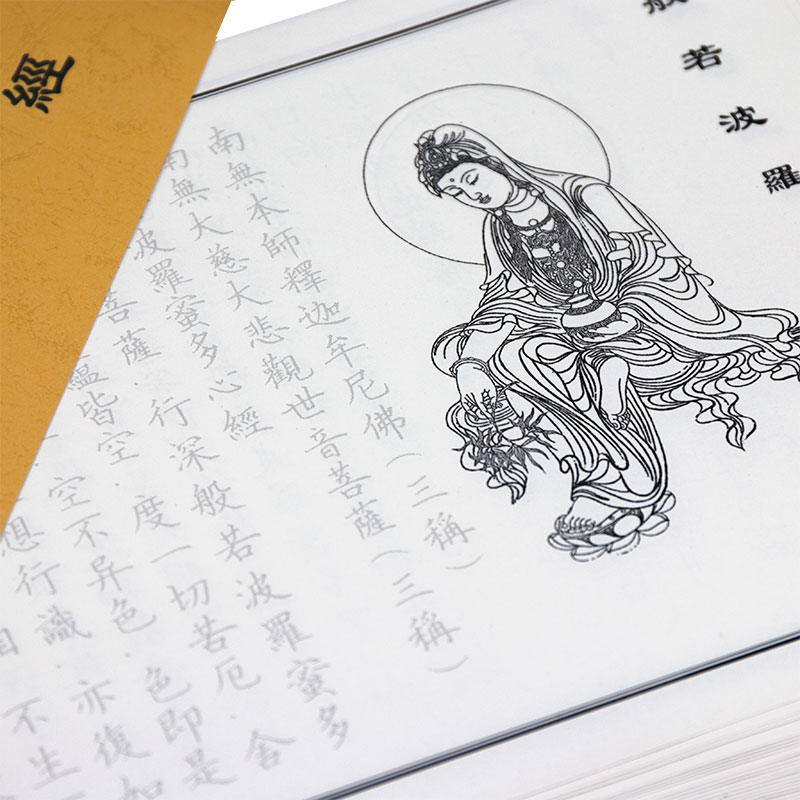 經
般若波羅
南無本師釋迦牟尼佛(三稱)
南無大慈大悲觀世音菩薩(三稱)
波羅蜜多心經
菩薩.行深般若波羅蜜多
蘊皆空.度一切苦厄.舍
.空不异色.色即是
想行識.亦復如
不生